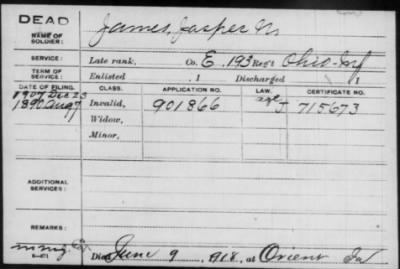 DEAD
NAME OF SOLDIER: James, Jasper N.
SERVICE: Late rank, Co. E, 193 Reg't Ohio Inf
TERM OF SERVICE: Enlisted , 1 Discharged , 1
DATE OF FILING. CLASS. APPLICATION NO. LAW. CERTIFICATE NO.
1907 Dec 23
1890 Aug 7 Invalid, 901866 J 715673
Widow,
Minor,
ADDITIONAL SERVICES:
REMARKS:
Died June 9, 1918, at Orient Ia